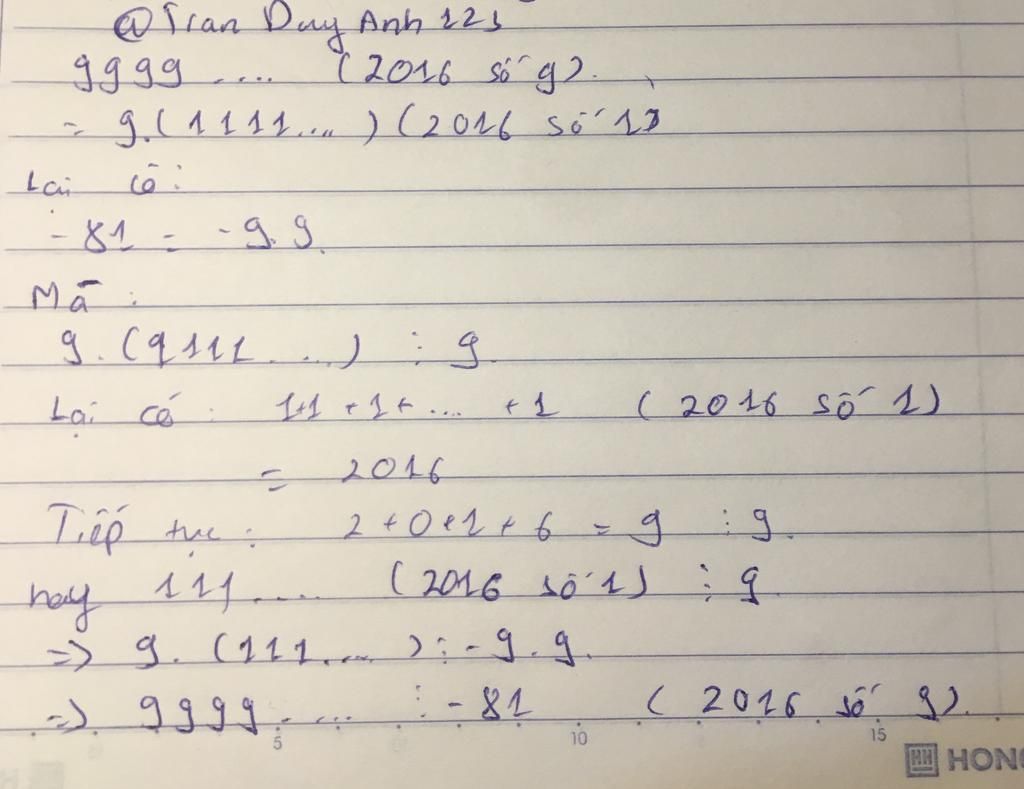 @Tran Duy Anh 123
9999 .... (2016 số 9).
= 9.(1111....) (2016 số 1)
Lại có:
-81 = -9.9.
Mà :
9.(9111....) ⋮ 9.
Lại có: 1+1+1+.... +1 (2016 số 1)
= 2016
Tiếp tục: 2+0+1+6 = 9 ⋮ 9.
hay 111.... (2016 số 1) ⋮ 9
=> 9.(111....) ⋮ -9.9.
=> 9999.... ⋮ -81 (2016 số 9).
5 10 15
HONG